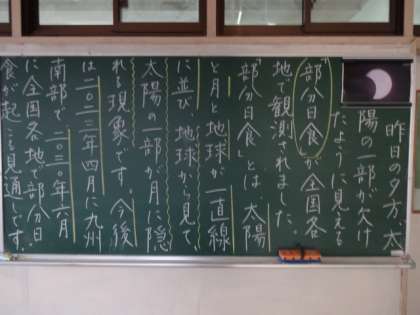 昨日の夕方、太
陽の一部が欠け
たように見える
「部分日食」が全国各
地で観測されました。
「部分日食」とは、太陽
と月と地球が一直線
に並び、地球から見て、
太陽の一部が月に隠
れる現象です。今後
は二〇二三年四月に九州
南部で、二〇三〇年六月
に全国各地で部分日
食が起こる見通しです。